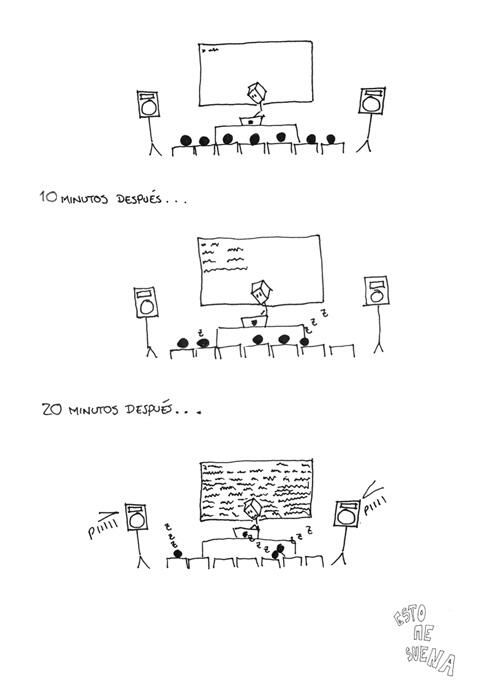 10 MINUTOS DESPUÉS...
z
z
z
z
20 MINUTOS DESPUÉS...
PIIIII
PIIII
z
z
z
z
z
z
z
z
ESTO
ME
SUENA